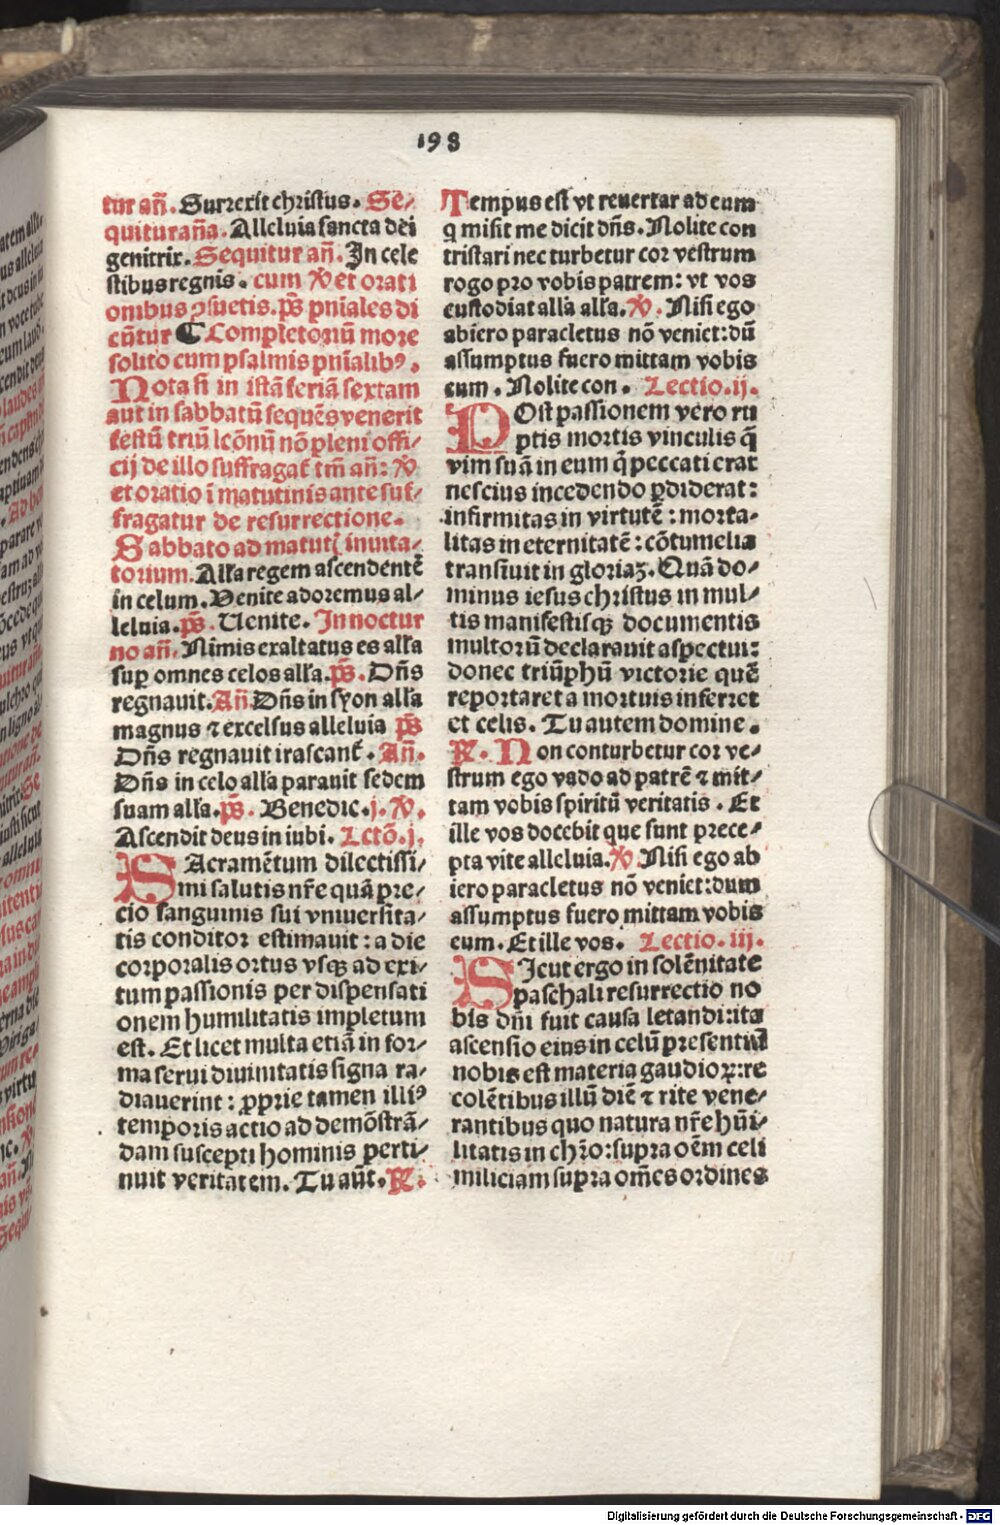 198
tur añ. Surrexit christus. Se/
quitur aña. Alleluia sancta dei
genitrix. Sequitur añ. In cele
stibus regnis. cum ꝟ et orati
onibus ꝯsuetis. p̃s pñiales di
cũtur ¶ Completoriũ more
solito cum psalmis pñialibꝰ.
Nota si in istã feriã sextam
aut in sabbatũ sequẽs venerit
festũ triũ lcõnũ nõ pleni offi/
cij de illo suffragat̃ tm̃ añ: ꝟ
et oratio ĩ matutinis ante suf/
fragatur de resurrectione.
Sabbato ad matut̃ inuita/
torium. All'a regem ascendentẽ
in celum. Venite adoremus al/
leluia. p̃s. Uenite. In noctur
no añ. Nimis exaltatus es all'a
suꝑ omnes celos all'a. p̃s. Dñs
regnauit. Añ. Dñs in syon all'a
magnus ⁊ excelsus alleluia p̃s
Dñs regnauit irascant̃. Añ.
Dñs in celo all'a parauit sedem
suam all'a. p̃s. Benedic. j. ꝟ.
Ascendit deus in iubi. Lctõ. j.
SAcramẽtum dilectissi/
mi salutis nr̃e quã pre/
cio sanguinis sui vniuersita/
tis conditor estimauit: a die
corporalis ortus vsqꝫ ad exi/
tum passionis per dispensati
onem humilitatis impletum
est. Et licet multa etiã in for/
ma serui diuinitatis signa ra/
diauerint: ꝓprie tamen illiꝰ
temporis actio ad demõstrã/
dam suscepti hominis perti/
nuit veritatem. Tu aũt. ℟.
Tempus est vt reuertar ad eum
q̃ misit me dicit dñs. Nolite con
tristari nec turbetur cor vestrum
rogo pro vobis patrem: vt vos
custodiat all'a all'a. ꝟ. Nisi ego
abiero paracletus nõ veniet: dũ
assumptus fuero mittam vobis
eum. Nolite con. Lectio. ij.
POst passionem vero ru
ptis mortis vinculis q̃
vim suã in eum q̃ peccati erat
nescius incedendo ꝑdiderat:
infirmitas in virtutẽ: morta/
litas in eternitatẽ: cõtumelia
transiuit in gloriaꝫ. Quã do/
minus iesus christus in mul/
tis manifestisqꝫ documentis
multorũ declarauit aspectui:
donec triũphũ victorie quẽ
reportaret a mortuis inferret
et celis. Tu autem domine.
℟. Non conturbetur cor ve/
strum ego vado ad patrẽ ⁊ mit/
tam vobis spiritũ veritatis. Et
ille vos docebit que sunt prece/
pta vite alleluia. ꝟ. Nisi ego ab
iero paracletus nõ veniet: dum
assumptus fuero mittam vobis
eum. Et ille vos. Lectio. iij.
SIcut ergo in solẽnitate
paschali resurrectio no
bis dñi fuit causa letandi: ita
ascensio eius in celũ presentiũ
nobis est materia gaudioꝝ: re
colẽtibus illũ diẽ ⁊ rite vene/
rantibus quo natura nr̃e hũi/
litatis in chr̃o: supra oẽm celi
miliciam supra om̃es ordines
Digitalisierung gefördert durch die Deutsche Forschungsgemeinschaft - DFG